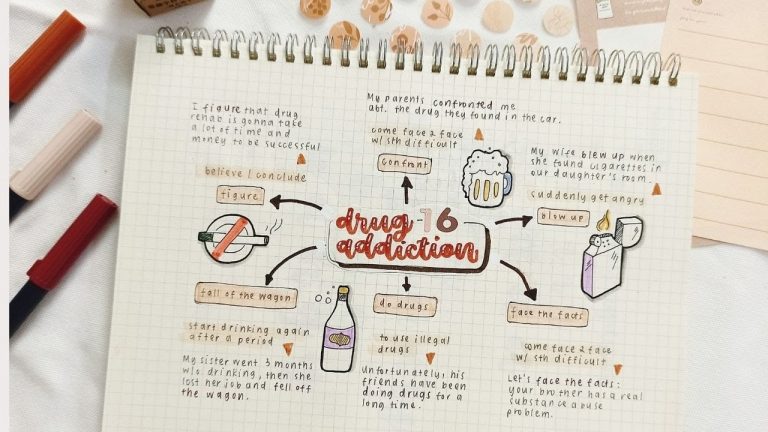 I figure that drug
rehab is gonna take
a lot of time and
money to be successful
believe / conclude
figure
My parents confronted me
abt. the drug they found in the car.
come face 2 face
w/ sth difficult
confront
My wife blew up when
she found cigarettes in
our daughter's room
suddenly get angry
blow up
drug 16
addiction
fall of the wagon
start drinking again
after a period
My sister went 3 months
w/o drinking, then she
lost her job and fell off
the wagon.
do drugs
to use illegal
drugs
Unfortunately, his
friends have been
doing drugs for a
long time.
face the facts
come face 2 face
w/ sth difficult
Let's face the facts:
your brother has a real
substance abuse
problem.